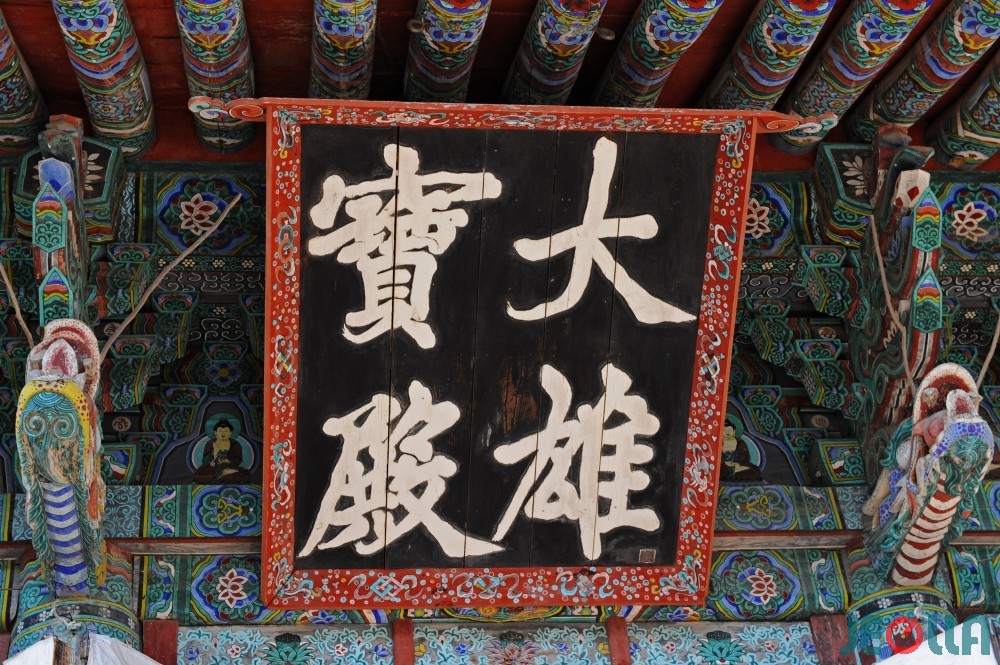 大雄
寶殿
JEOLLA